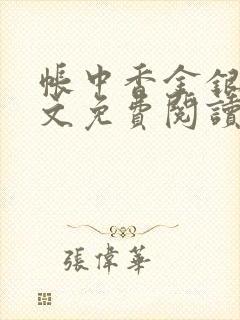 帳中香金銀
文免費閱讀
張偉華